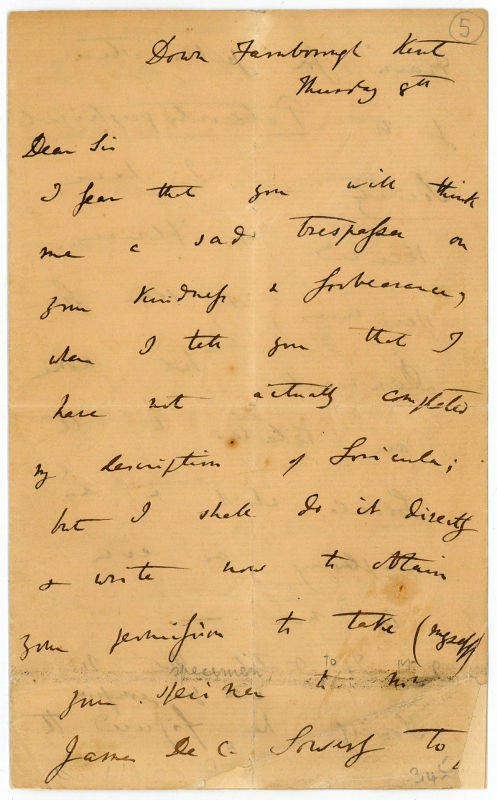 5
Down Farnborough Kent
Thursday 8th
Dear Sir
I fear that you will think
me a sad trespasser on
your kindness & forbearance,
when I tell you that I
have not actually completed
my description of Loricula;
but I shall do it directly
& write now to obtain
your permission to take (myself)
specimen to Mr
your specimen to Mr
James De C. Sowerby to
345